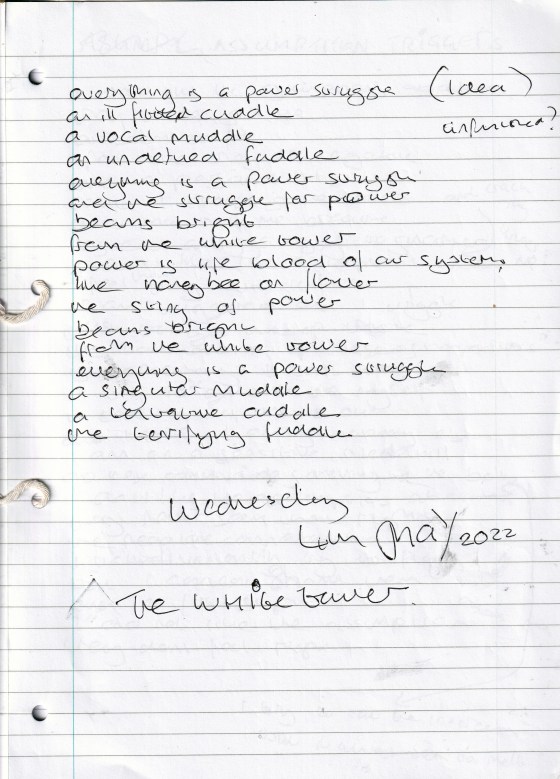 everything is a power struggle (Idea)
an ill fitted cuddle
a vocal muddle
an undefined fuddle
everything is a power struggle
and the struggle for power
beams bright
from the white tower
power is life blood of our system,
like honey bee on flower
the sting of power
beams bright
from the white tower
everything is a power struggle
a singular muddle
a cuddle
the terrifying fuddle
Wednesday
4th May/2022
The White tower.